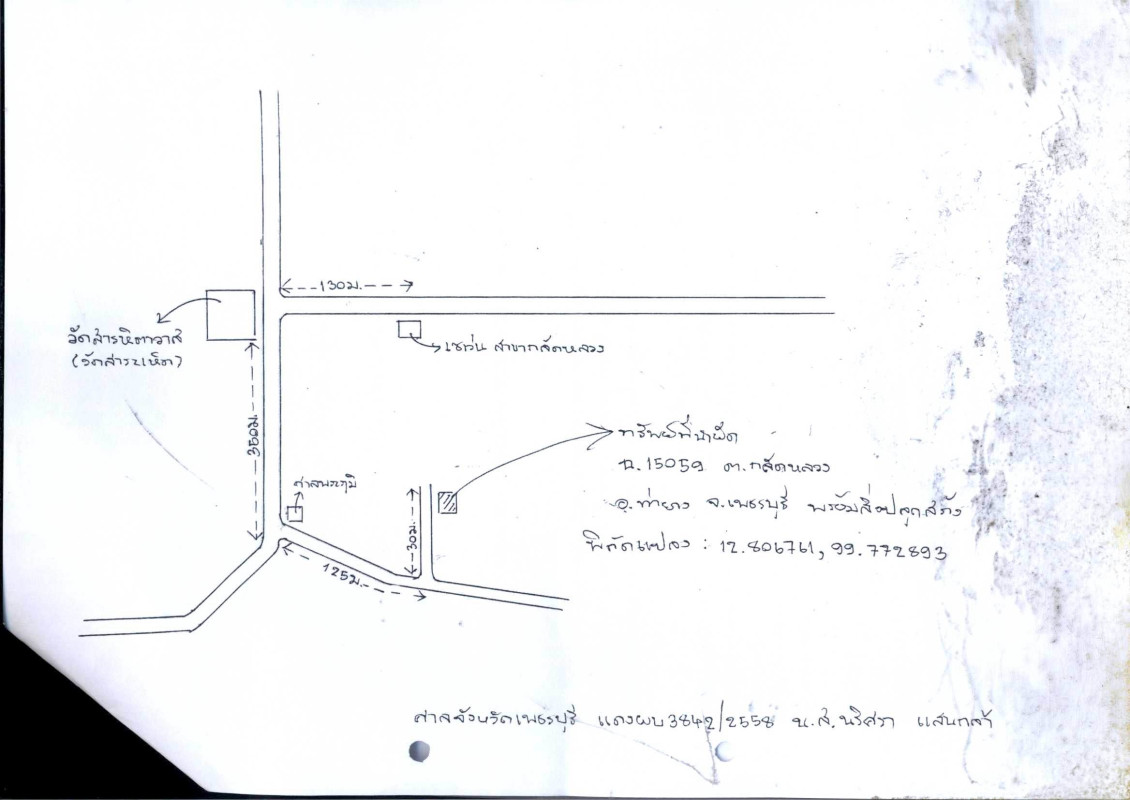 130ม.
วัดสารหิตาวาส
(วัดสาระเห็ด)
เซเว่น สาขากลัดหลวง
350ม.
ทรัพย์ที่นำยึด
ฉ.15059 ต.กลัดหลวง
อ.ท่ายาง จ.เพชรบุรี พร้อมสิ่งปลูกสร้าง
ศาลพระภูมิ
30ม.
พิกัดแปลง : 12.806761, 99.772893
125ม.
ศาลจังหวัดเพชรบุรี แดงผบ3842/2558 น.ส.นริศรา แสนกล้า